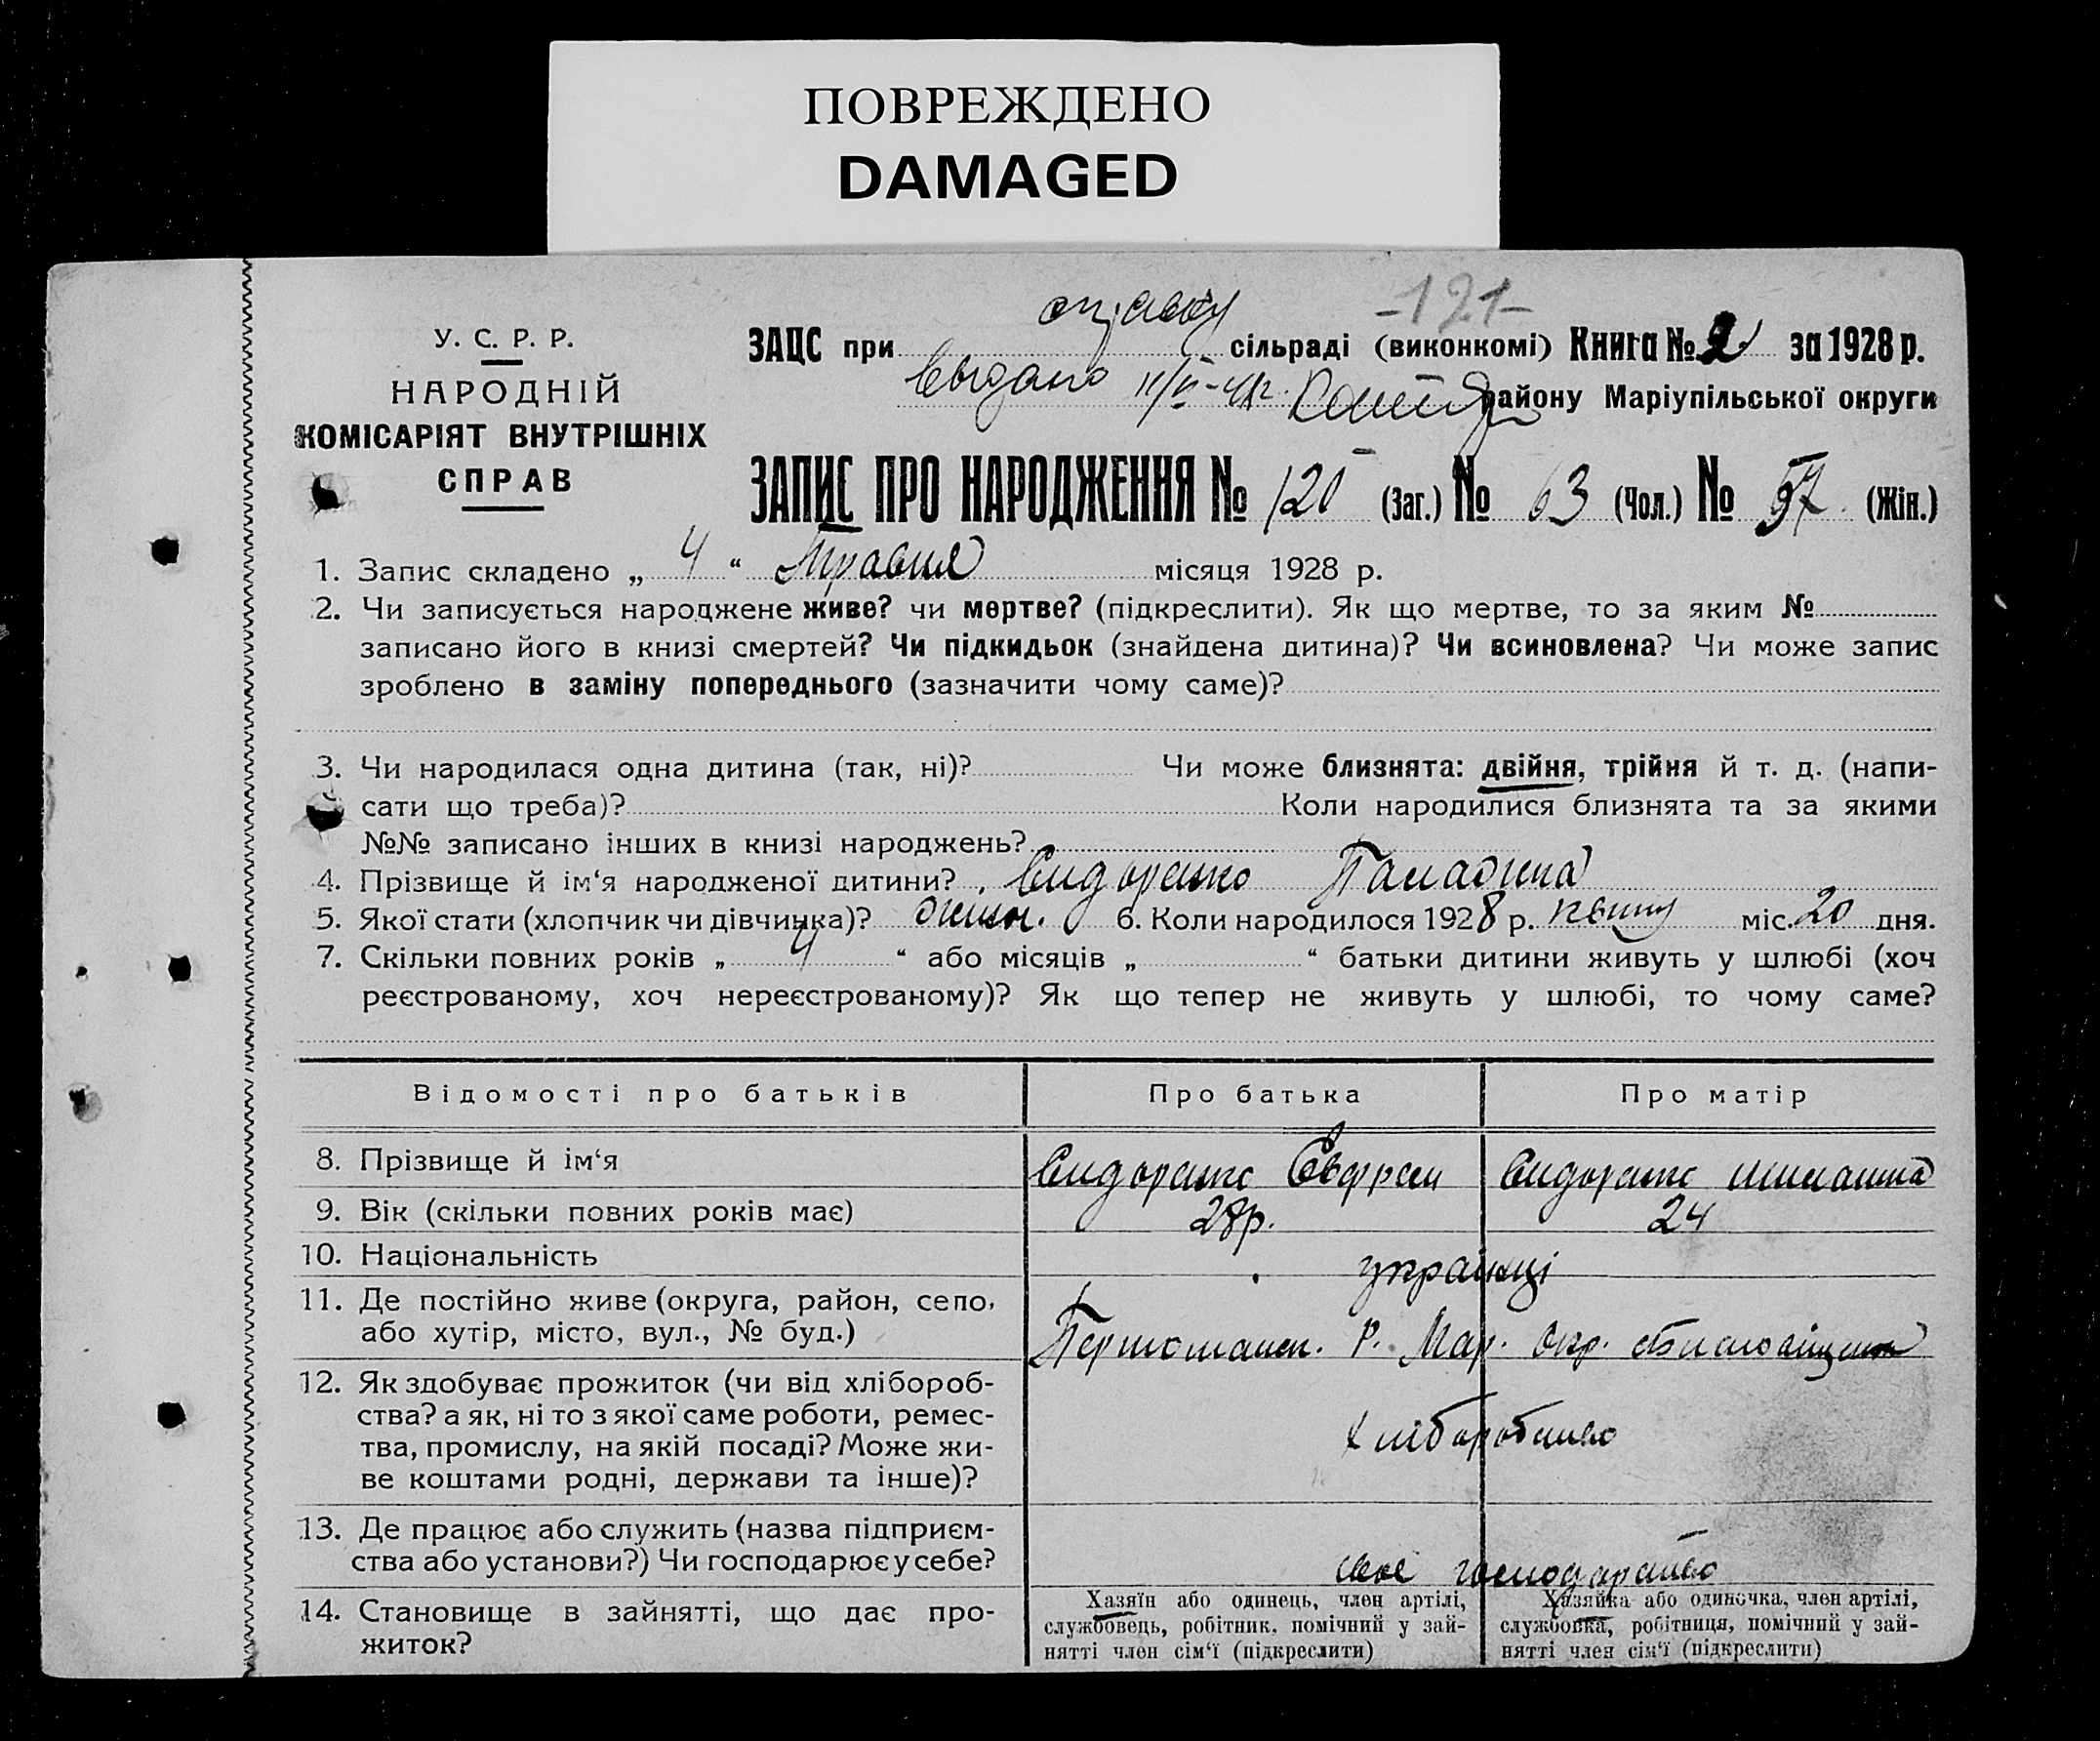 ПОВРЕЖДЕНО
DAMAGED
-121-
У. С. Р. Р.
НАРОДНІЙ
КОМІСАРІЯТ ВНУТРІШНІХ
СПРАВ
ЗАЦС при сільраді (виконкомі) Книга № 2 за 1928 р.
Выдано району Маріупільської округи
ЗАПИС ПРО НАРОДЖЕННЯ № 120 (Заг.) № 63 (Чол.) № 57 (Жін.)
1. Запис складено „ 4 “ Травня місяця 1928 р.
2. Чи записується народжене живе? чи мертве? (підкреслити). Як що мертве, то за яким №
записано його в книзі смертей? Чи підкидьок (знайдена дитина)? Чи всиновлена? Чи може запис
зроблено в заміну попереднього (зазначити чому саме)?
3. Чи народилася одна дитина (так, ні)? Чи може близнята: двійня, трійня й т. д. (напи-
сати що треба)? Коли народилися близнята та за якими
№№ записано інших в книзі народжень?
4. Прізвище й ім‘я народженої дитини? Сидоренко
5. Якої стати (хлопчик чи дівчинка)? жін. 6. Коли народилось 1928 р. квітн міс. 20 дня.
7. Скільки повних років „ 4 “ або місяців „ “ батьки дитини живуть у шлюбі (хоч
реєстрованому, хоч нереєстрованому)? Як що тепер не живуть у шлюбі, то чому саме?
Відомості про батьків Про батька Про матір
8. Прізвище й ім‘я Сидоренко Сидоренко
9. Вік (скільки повних років має) 28р. 24
10. Національність українці
11. Де постійно живе (округа, район, село,
або хутір, місто, вул., № буд.) Р. Мар. Окр.
12. Як здобуває прожиток (чи від хлібороб-
ства? а як, ні то з якої саме роботи, ремес-
тва, промислу, на якій посаді? Може жи-
ве коштами родні, держави та інше)?
хліборобство
13. Де працює або служить (назва підприєм-
ства або установи?) Чи господарює у себе?
своє господарство
14. Становище в зайнятті, що дає про-
житок?
Хазяїн або одинець, член артілі,
службовець, робітник, помічний у зай-
нятті член сім‘ї (підкреслити)
Хазяйка або одиночка, член артілі,
службовка, робітниця, помічний у зай-
нятті член сім‘ї (підкреслити)